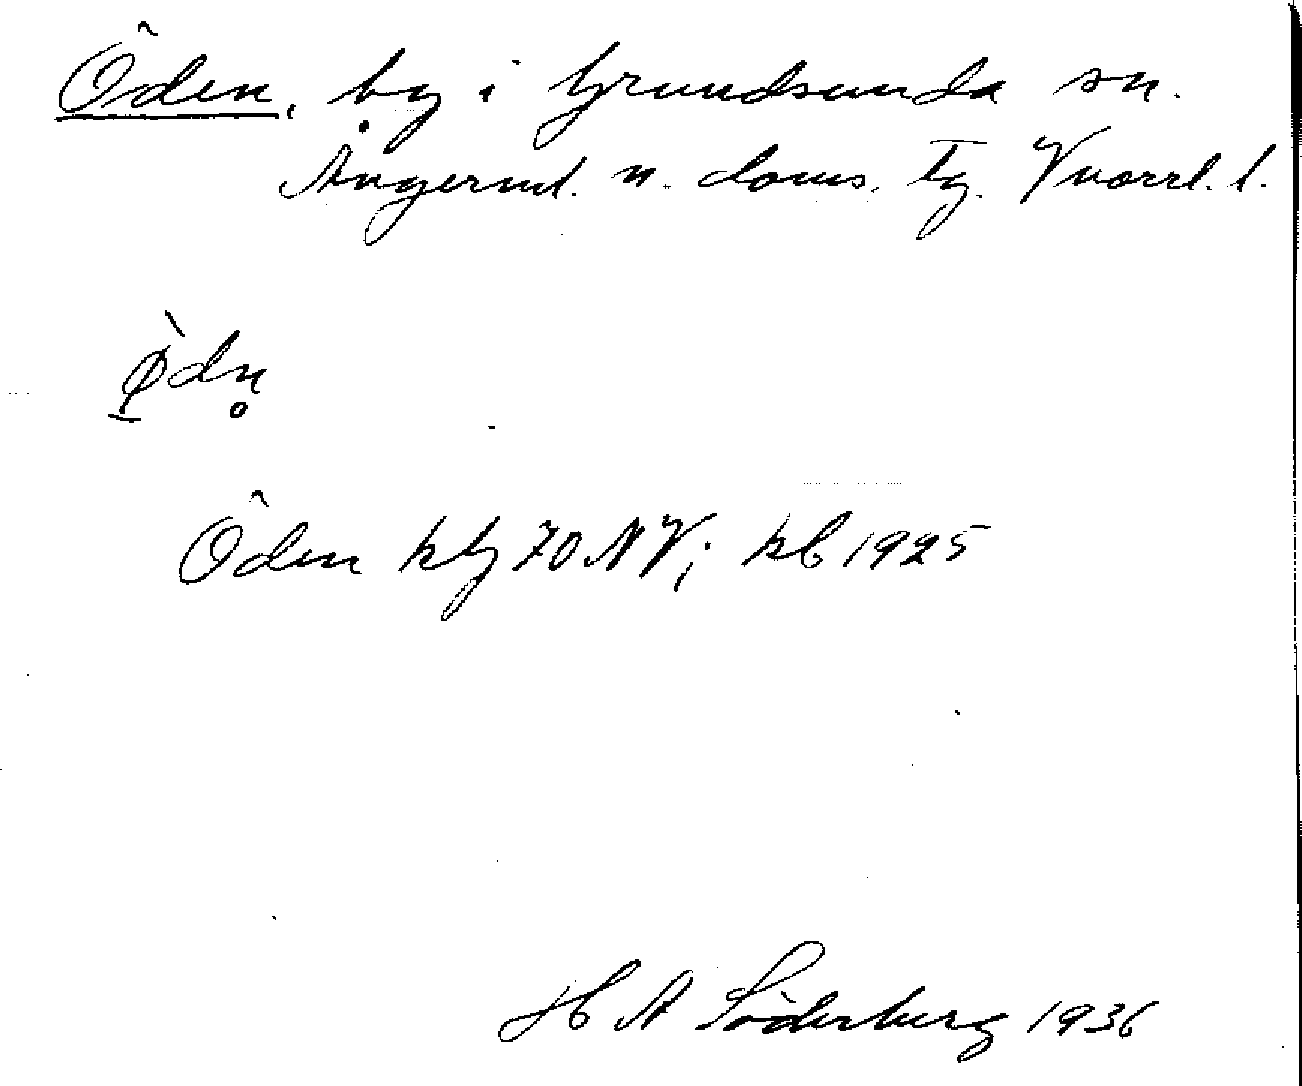 Öden, by i Grundsunda sn.
Ångerml. n. doms. tg. Vnorrl. l.
ø̀dn̥
Öden ktg 70 NV; kb 1925
H A Söderberg 1936